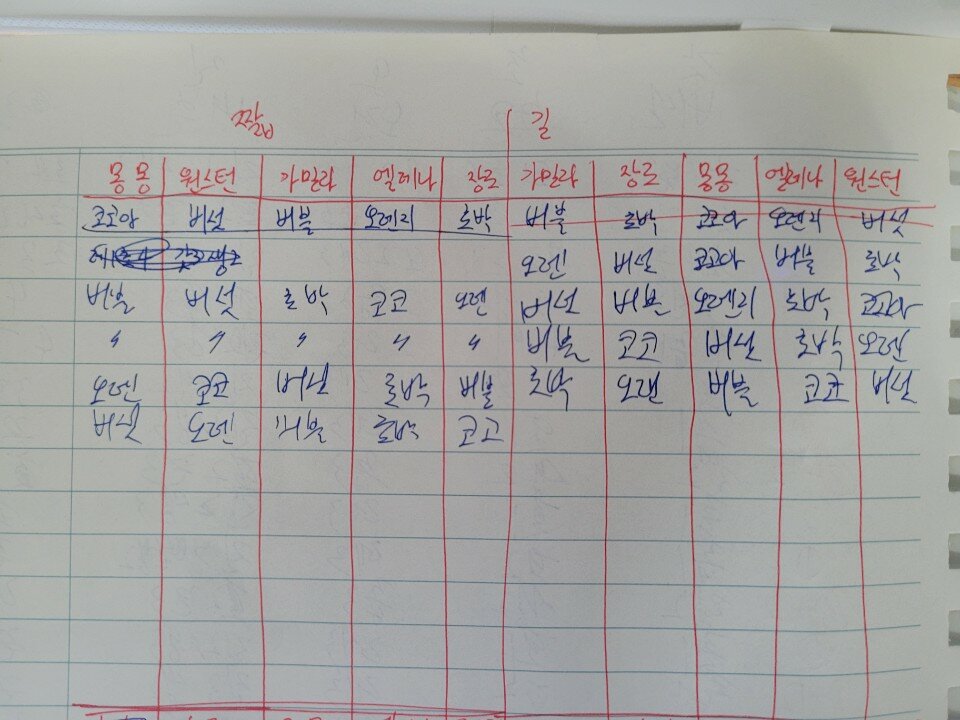 짧 길
몽몽 윈스턴 가밀라 엘레나 장로 가밀라 장로 몽몽 엘레나 윈스턴
코코아 버섯 버블 오렌지 호박 버블 호박 코코아 오렌지 버섯
오렌 버섯 코코아 버블 호박
버블 버섯 호박 코코 오렌 버섯 버블 오렌지 호박 코코아
〃 〃 〃 〃 〃 버블 코코 버섯 호박 오렌
오렌 코코 버섯 호박 버블 호박 오렌 버블 코코 버섯
버섯 오렌 버블 호박 코코